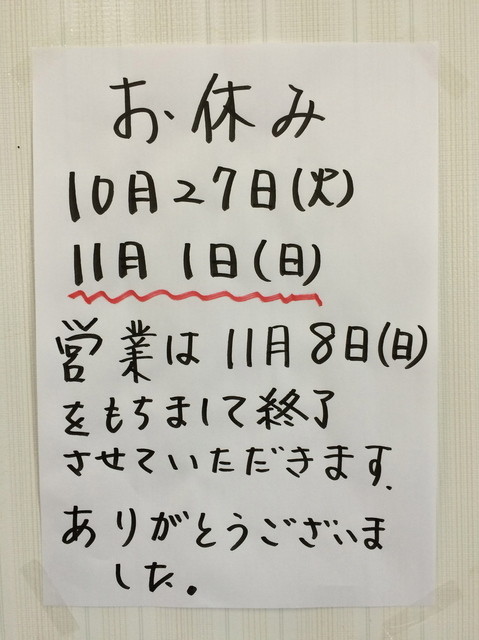 お休み
10月27日(火)
11月1日(日)
営業は11月8日(日)
をもちまして終了
させていただきます.
ありがとうございま
した。